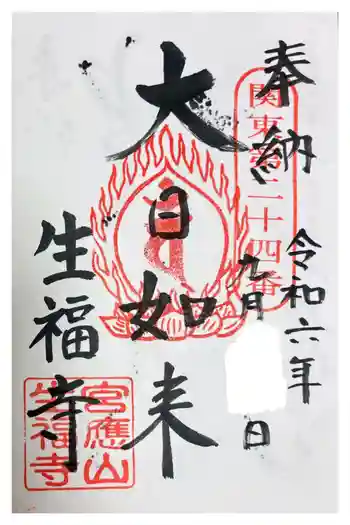 奉納
関東第二十四番
令和六年
九月 日
大日如来
生福寺
宮應山
生福寺